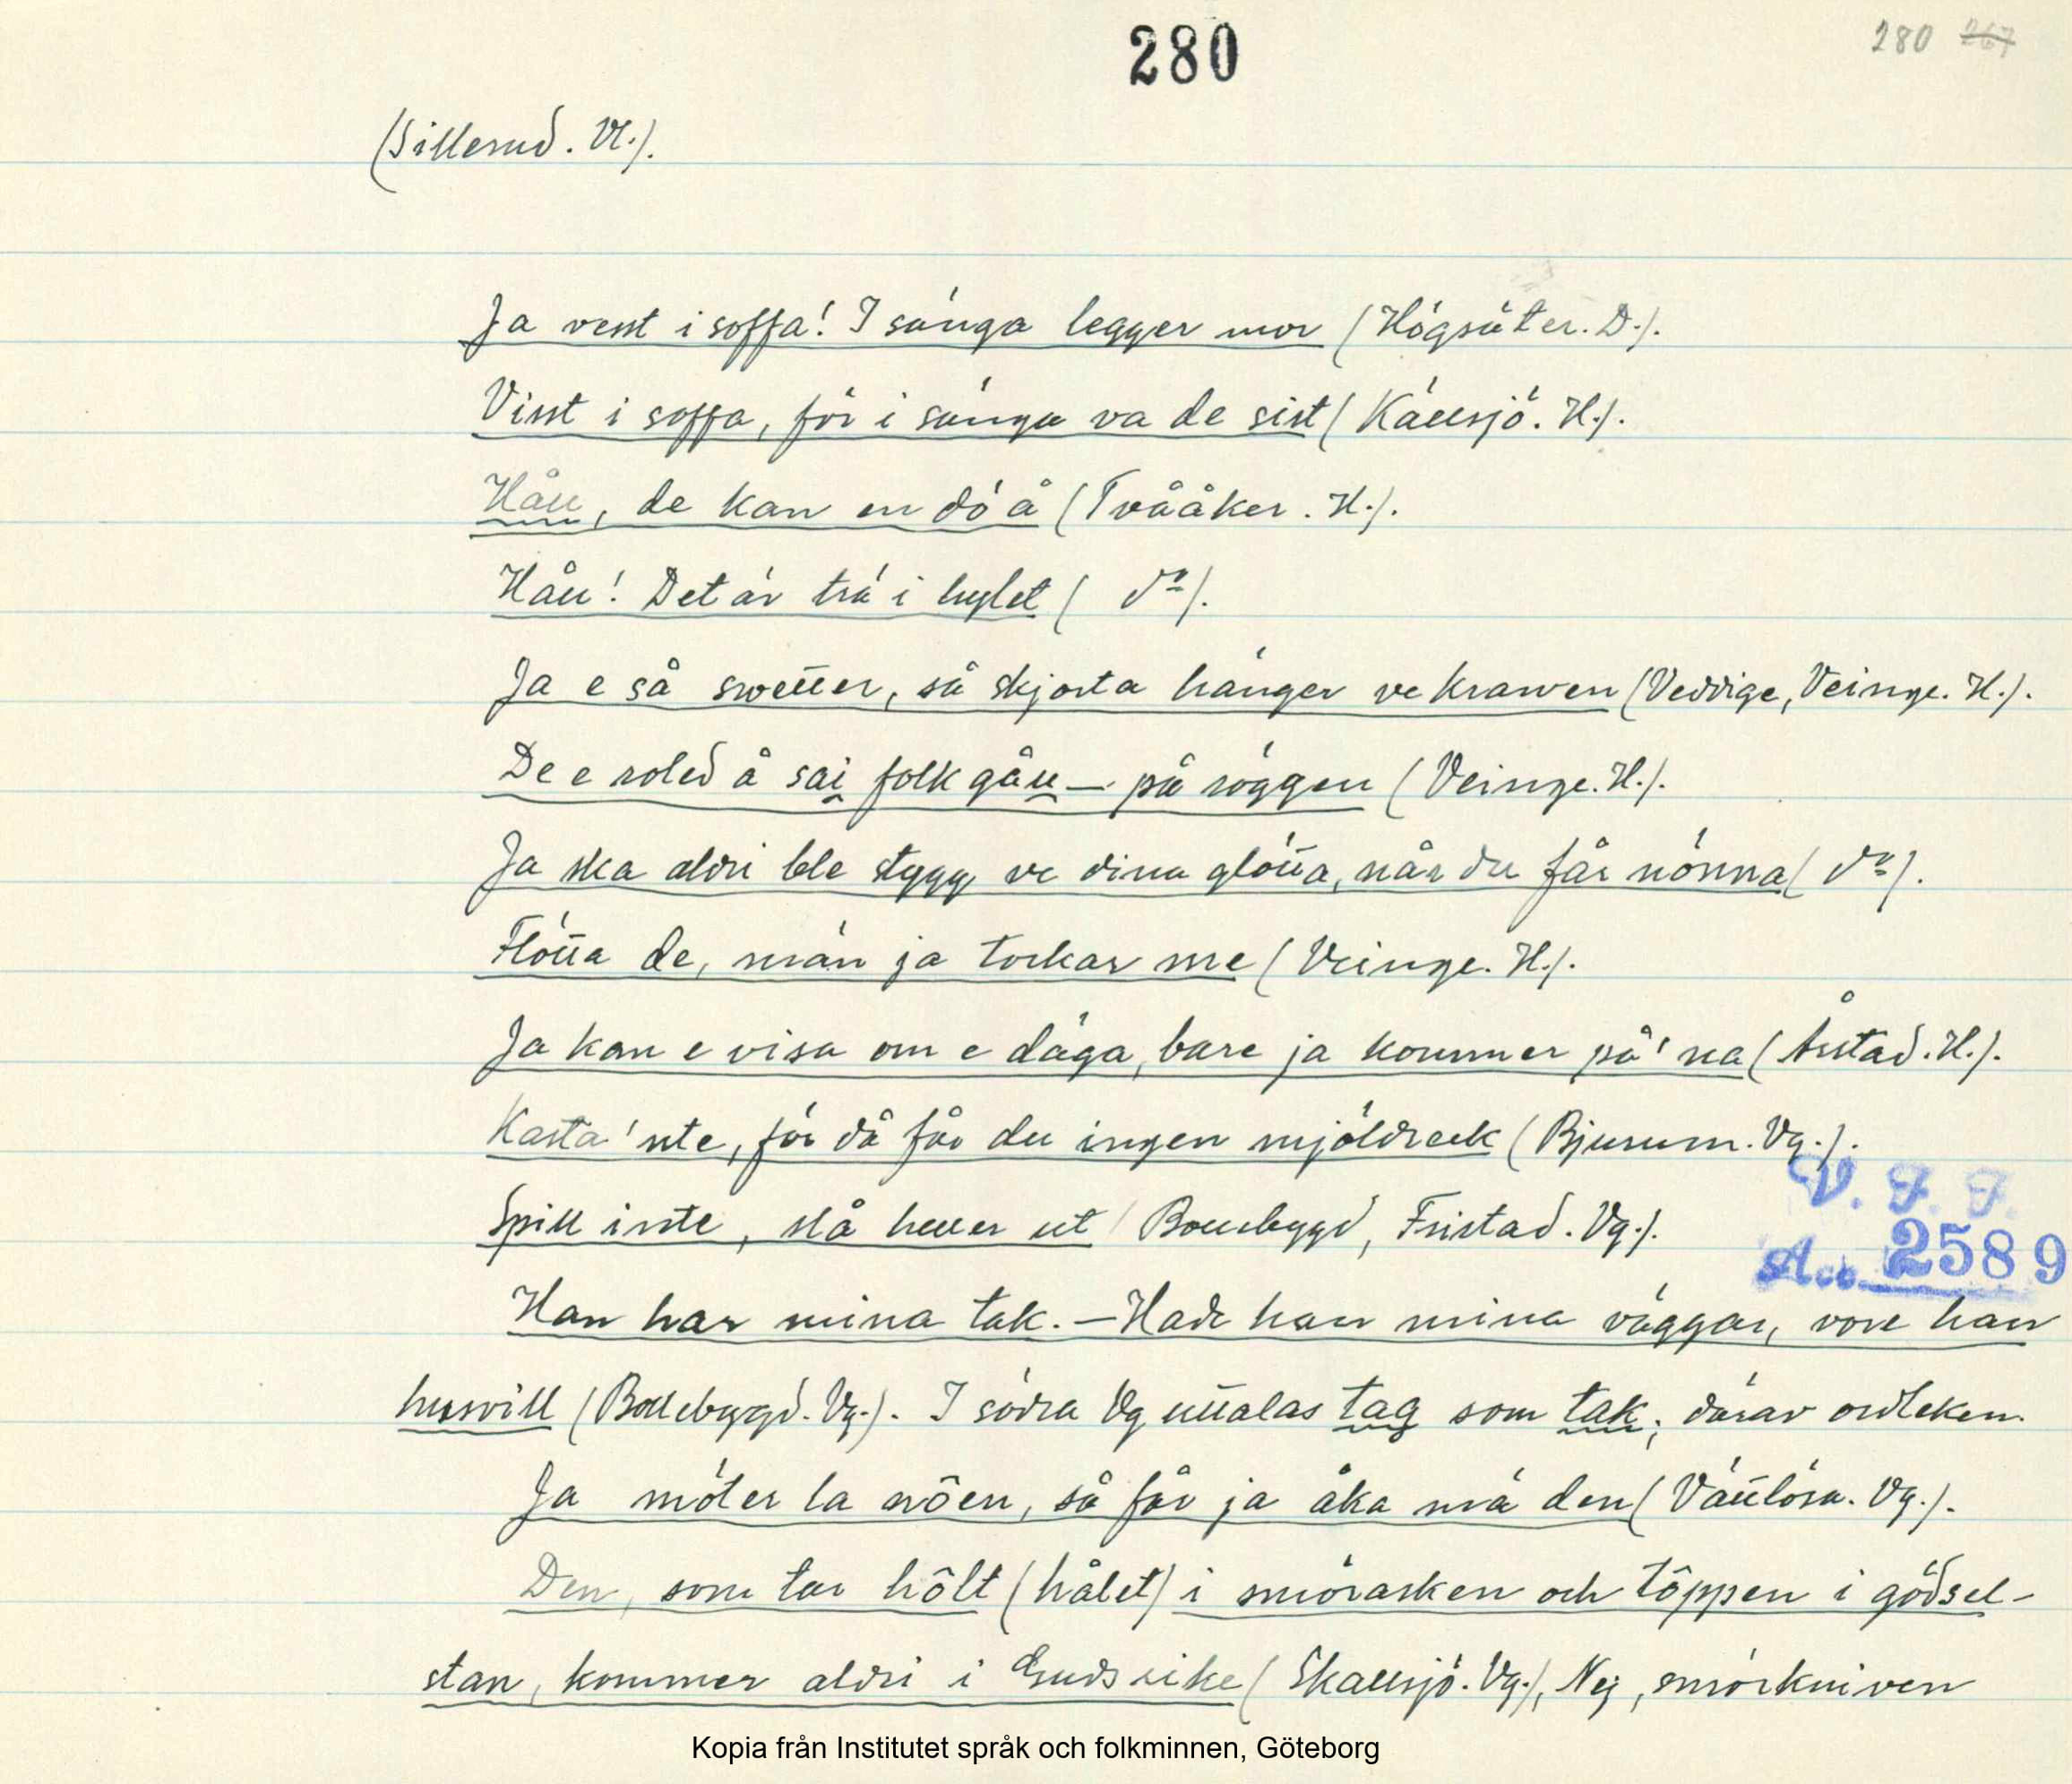 280
280 267
(Sillerud. Vl.).
Ja vesst i soffa! I sänga legger mor (Högsäter. D.).
Visst i soffa, för i sänga va de sist (Källsjö. H.).
Håll, de kan en dö å (Tvååker. H.).
Håll! Det är trä i hylet ( do).
Ja e så swetter, så skjorta hänger ve kraven (Veddige, Veinge. H.).
De e roled å sai folk gåu — på röggen (Veinge. H.).
Ja ska aldri ble stygg ve dina glötta, når du får nönna ( do).
Flötta de, män ja torkar me (Veinge. H.).
Ja kan e visa om e däga, bare ja kommer på' na (Årstad. H.).
Kasta' nte, för då får du ingen mjöldreck (Bjurum. Vg.).
V. F. F.
Spill inte, slå heller ut (Bollebygd, Fristad. Vg.).
Acc. 2589
Han har mina tak. — Hade han mina väggar, vore han
husvill (Bollebygd. Vg.). I södra Vg uttalas tag som tak, därav ordleken.
Ja möter la nôen, så får ja åka mä den (Vättlösa. Vg.).
Den, som tar hôlt (hålet) i smörasken och tôppen i gödsel-
stan, kommer aldri i Guds rike (Skallsjö. Vg.), Nej, smörkniven
Kopia från Institutet språk och folkminnen, Göteborg